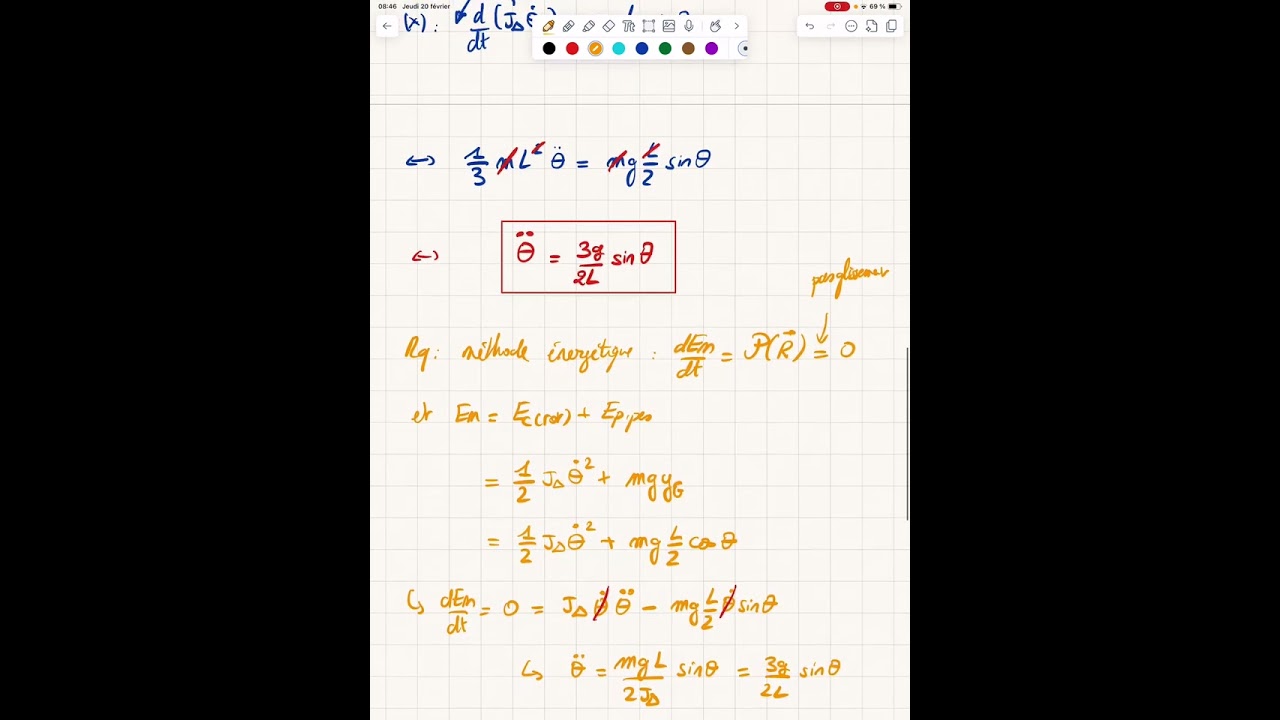 08:46 Jeudi 20 février 69 %
(x): d/dt (J_Δ θ̇
↔ 1/3 mL² θ̈ = mg L/2 sinθ
↔ θ̈ = 3g/2L sinθ
pas glissement
Rq: méthode énergétique : dEm/dt = P(R⃗) = 0
et Em = Ec(rot) + Ep,pes
= 1/2 J_Δ θ̇² + mg y_G
= 1/2 J_Δ θ̇² + mg L/2 cosθ
↳ dEm/dt = 0 = J_Δ θ̇ θ̈ - mg L/2 θ̇ sinθ
↳ θ̈ = mgL/2J_Δ sinθ = 3g/2L sinθ